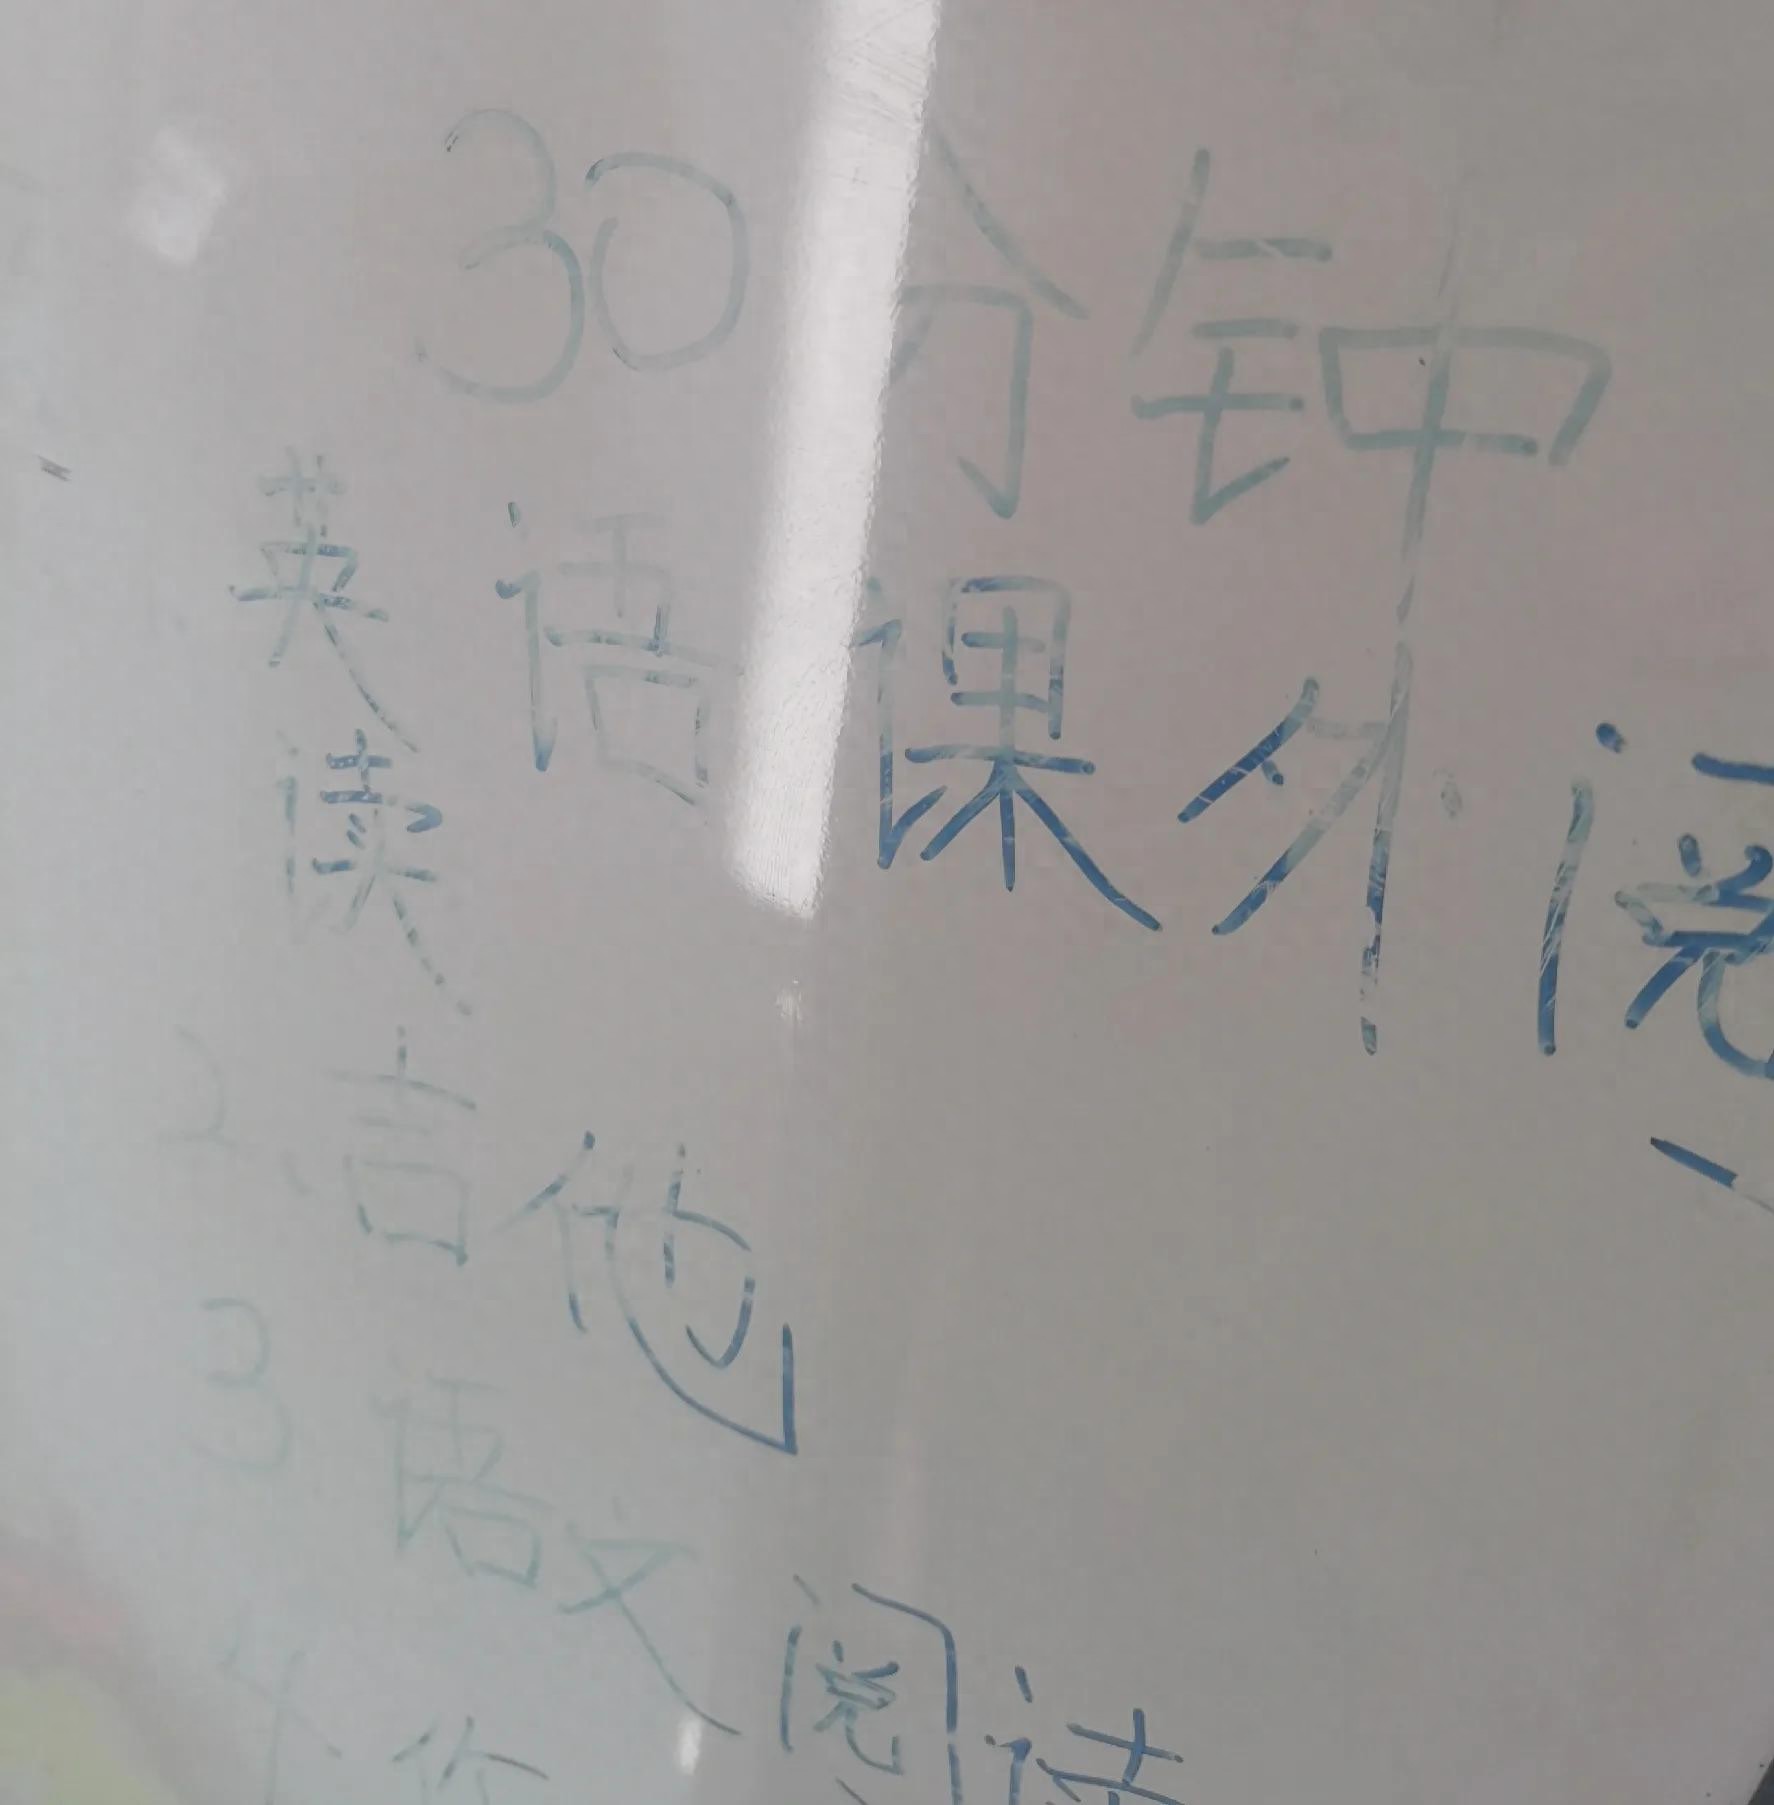 30分钟
英语课外阅
读
2 吉他
3 语文阅读
4